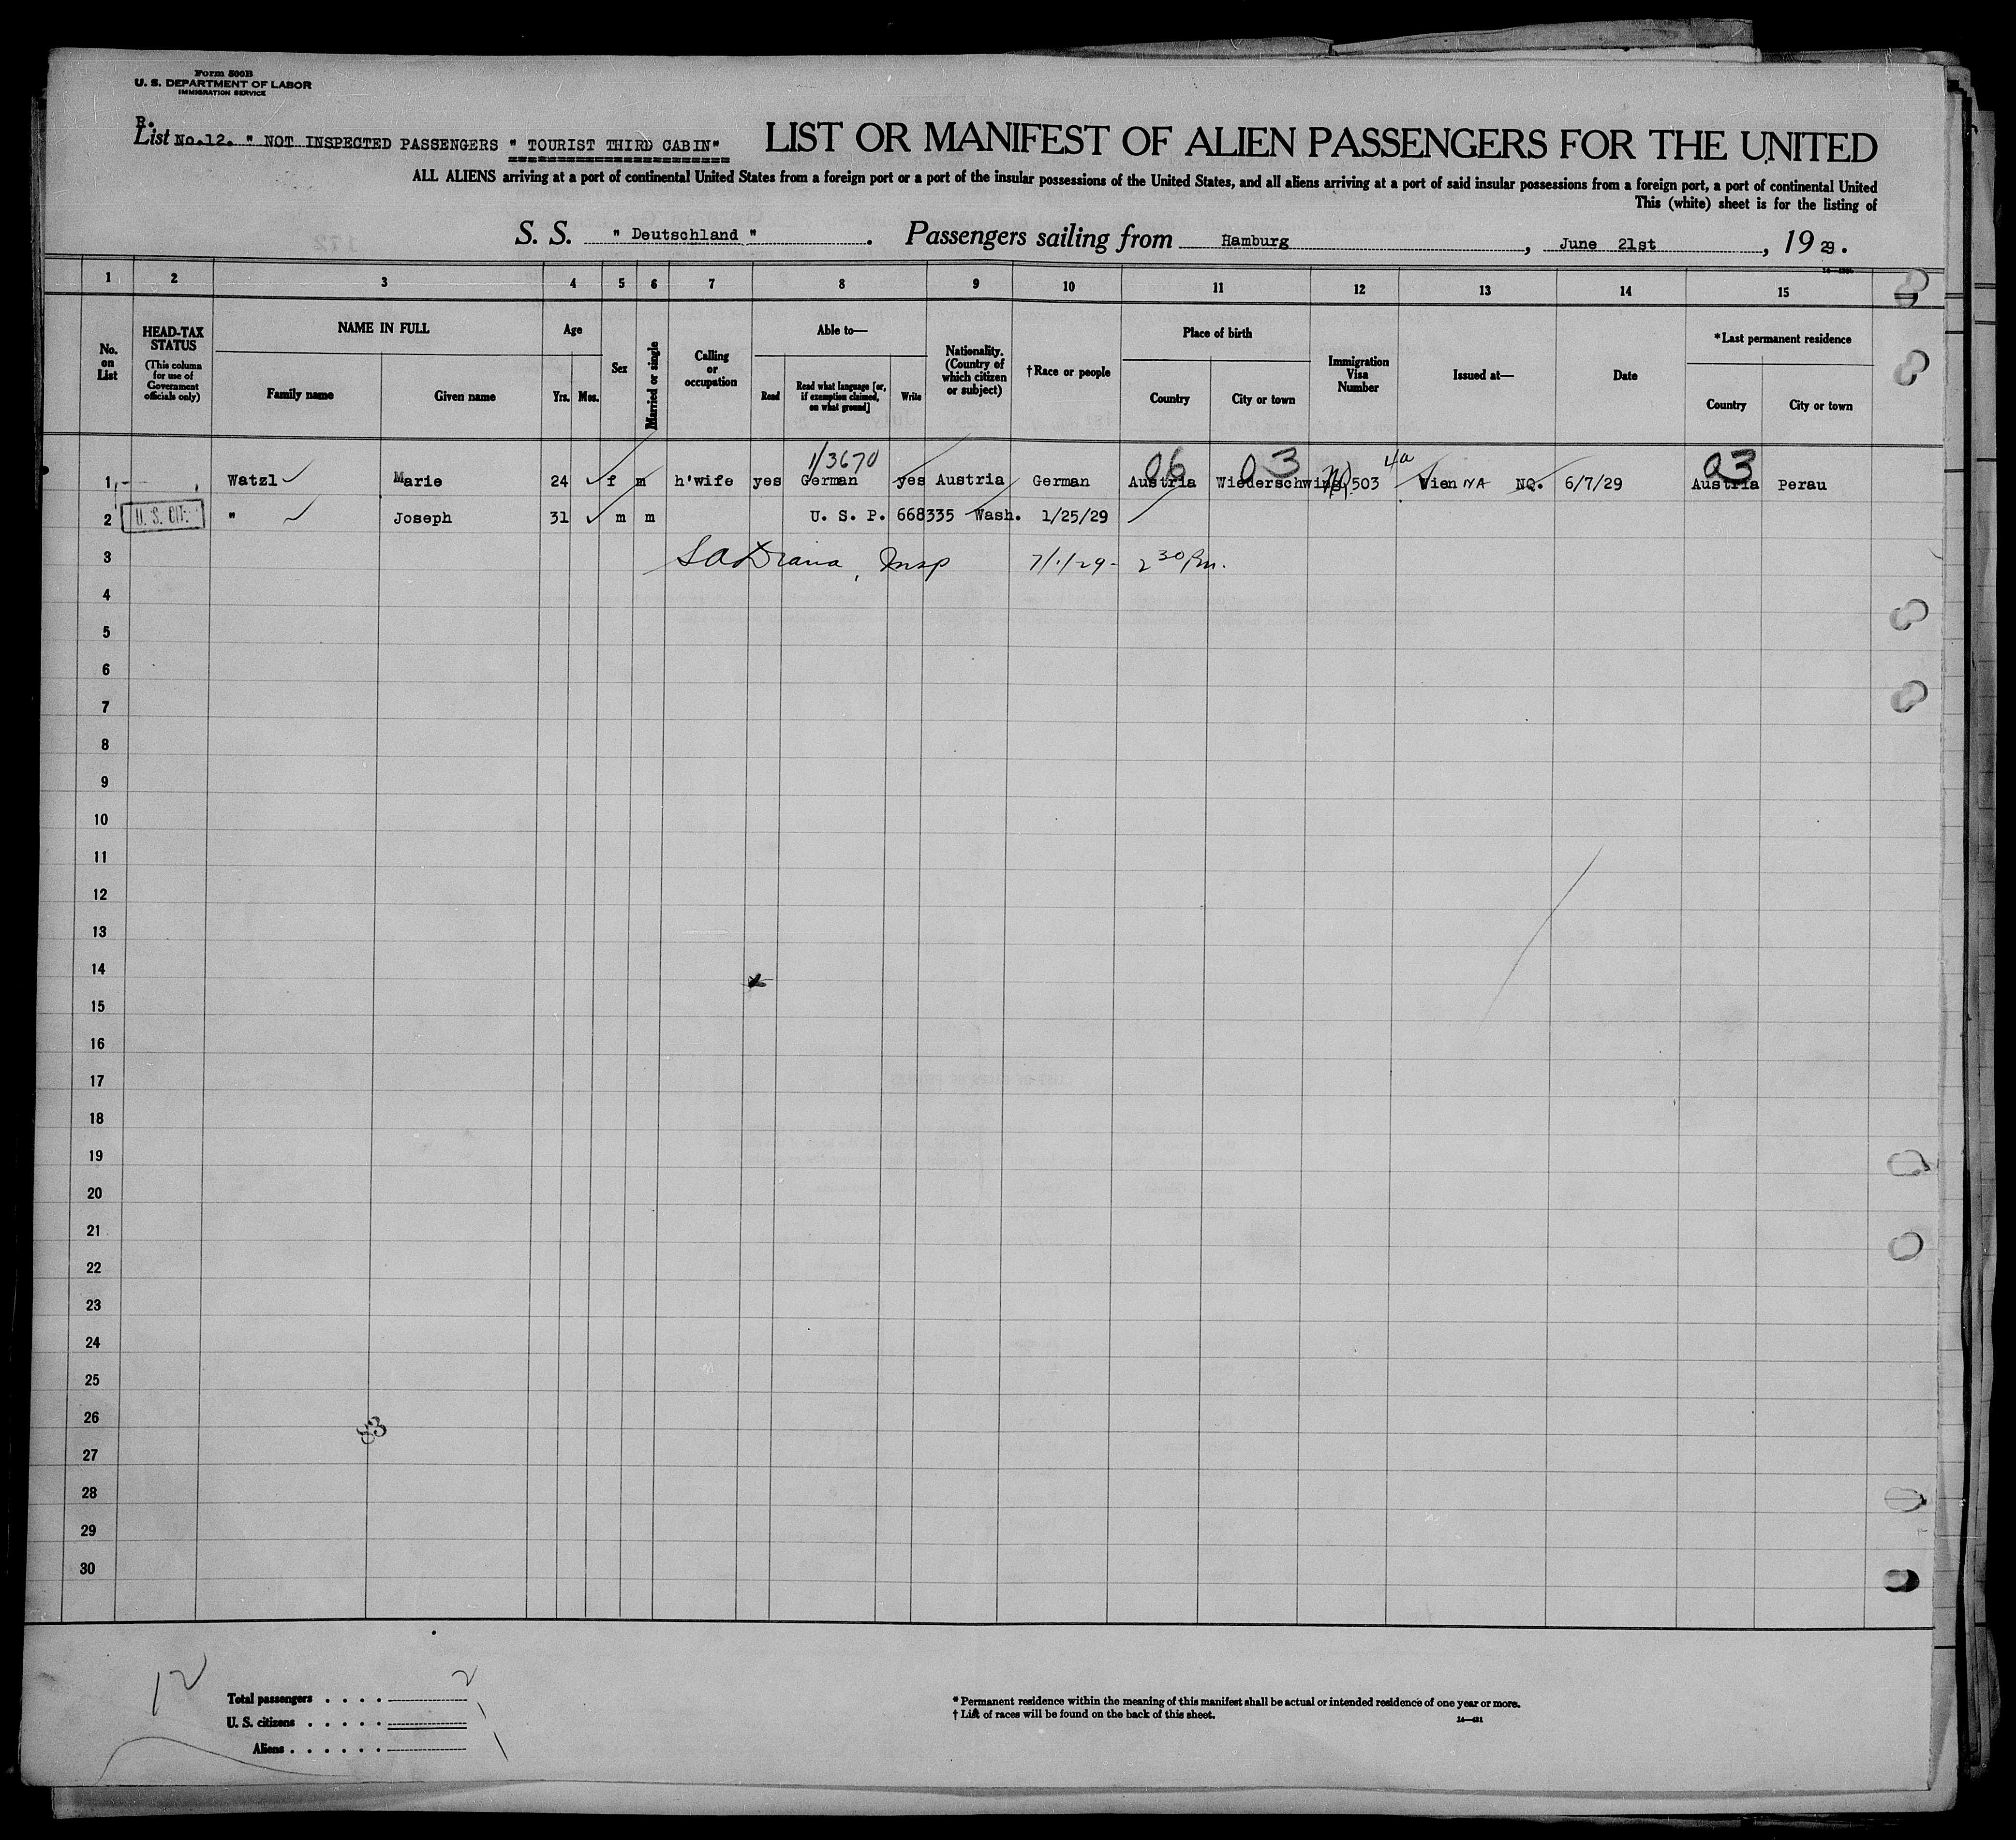 Form 500B
U. S. DEPARTMENT OF LABOR
IMMIGRATION SERVICE
R.
List No.12. " NOT INSPECTED PASSENGERS " TOURIST THIRD CABIN"
LIST OR MANIFEST OF ALIEN PASSENGERS FOR THE UNITED
ALL ALIENS arriving at a port of continental United States from a foreign port or a port of the insular possessions of the United States, and all aliens arriving at a port of said insular possessions from a foreign port, a port of continental United
This (white) sheet is for the listing of
S. S. " Deutschland ". Passengers sailing from Hamburg, June 21st, 19 29.
1 2 3 4 5 6 7 8 9 10 11 12 13 14 15
No. on List
HEAD-TAX STATUS
(This column for use of Government officials only)
NAME IN FULL
Family name
Given name
Age
Yrs.
Mos.
Sex
Married or single
Calling or occupation
Able to—
Read
Read what language [or, if exemption claimed, on what ground]
Write
Nationality. (Country of which citizen or subject)
†Race or people
Place of birth
Country
City or town
Immigration Visa Number
Issued at—
Date
*Last permanent residence
Country
City or town
1/3670 06 03 4a 03
1 Watzl Marie 24 f m h'wife yes German yes Austria German Austria Wiederschwing 503 Vienna NQ. 6/7/29 Austria Perau
2 U. S. CIT. " Joseph 31 m m U. S. P. 668335 Wash. 1/25/29
3 Insp 7/1/29- 2 30 Pm.
4
5
6
7
8
9
10
11
12
13
14
15
16
17
18
19
20
21
22
23
24
25
26
83
27
28
29
30
12
Total passengers . . . . 2
U. S. citizens . . . . . 1
Aliens . . . . . . 1
* Permanent residence within the meaning of this manifest shall be actual or intended residence of one year or more.
† List of races will be found on the back of this sheet.